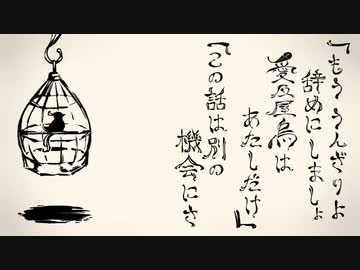 「もううんざりよ
辞めにしましょ
愛及屋烏は
あたしだけ」
「この話は別の
機会にさ